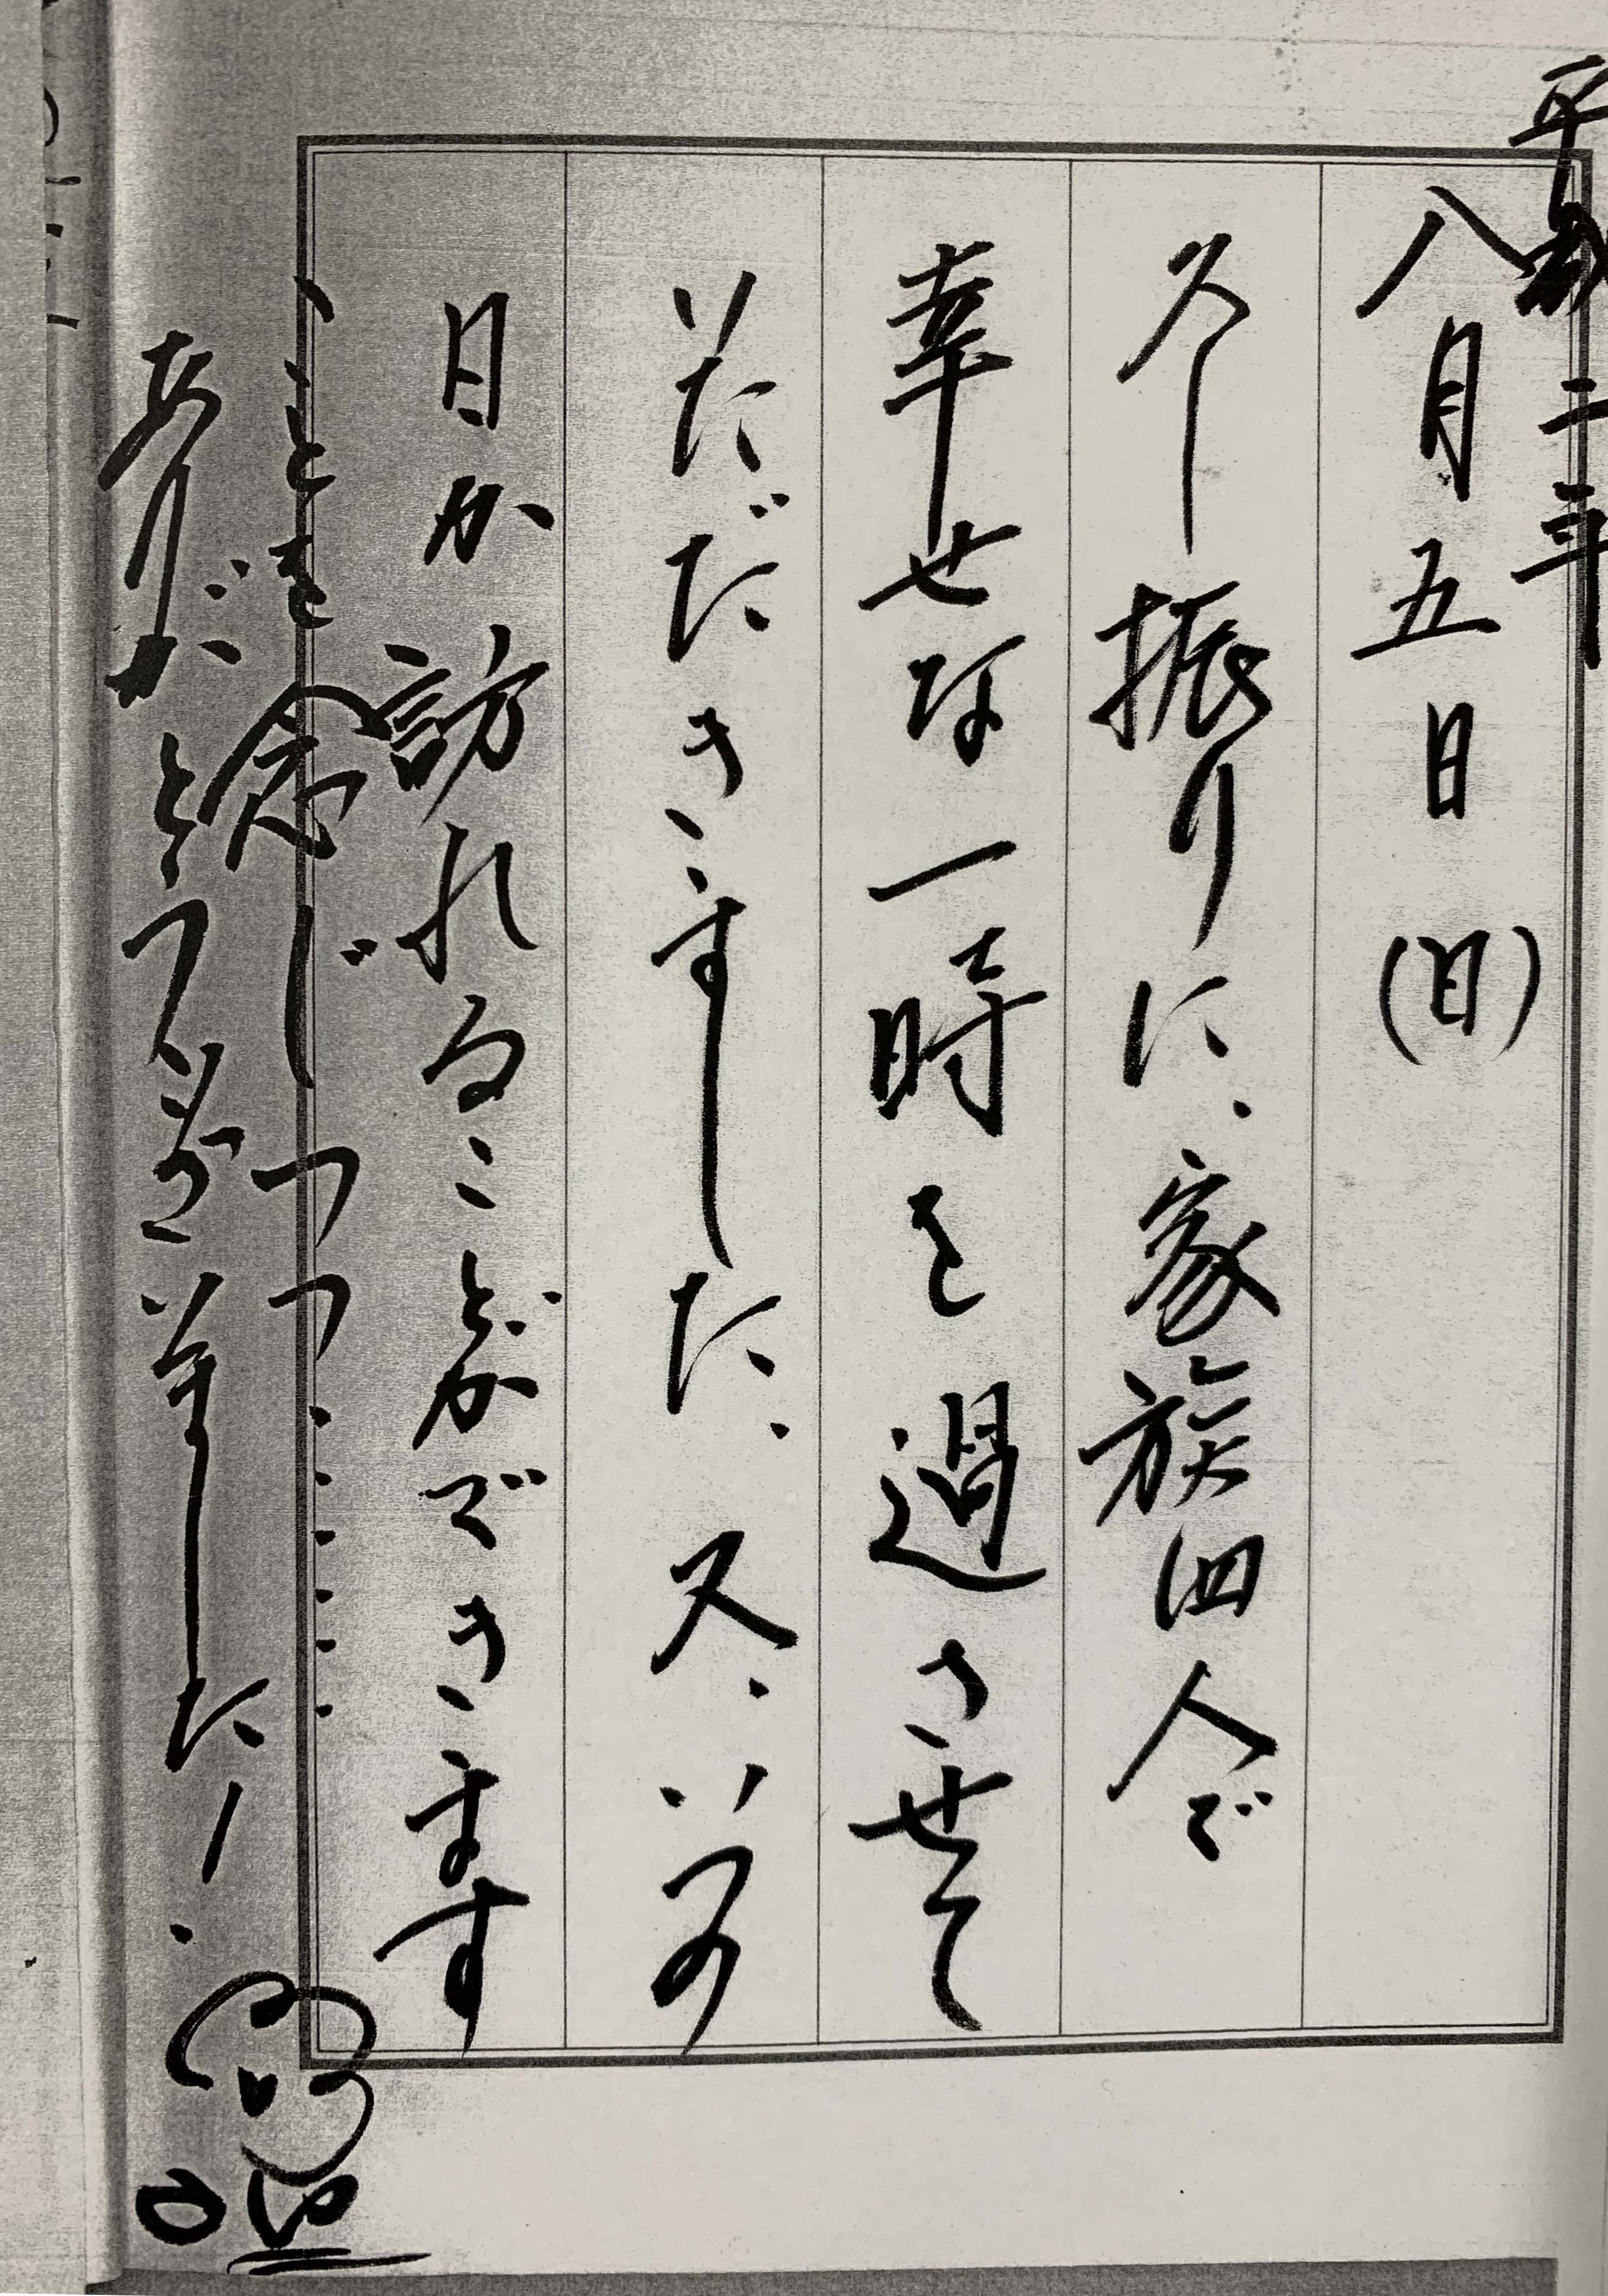 平成二年
八月五日(日)
久し振りに、家族四人で
幸せな一時を過させて
いただきました、又、いつの
日か訪れることができます
ことを念じつつ……
ありがとうございましたー.